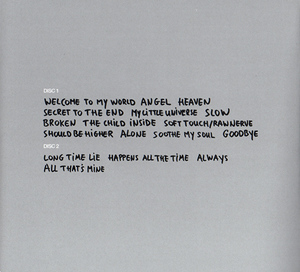 DISC 1
WELCOME TO MY WORLD ANGEL HEAVEN
SECRET TO THE END MY LITTLE UNIVERSE SLOW
BROKEN THE CHILD INSIDE SOFT TOUCH/RAW NERVE
SHOULD BE HIGHER ALONE SOOTHE MY SOUL GOODBYE
DISC 2
LONG TIME LIE HAPPENS ALL THE TIME ALWAYS
ALL THAT'S MINE